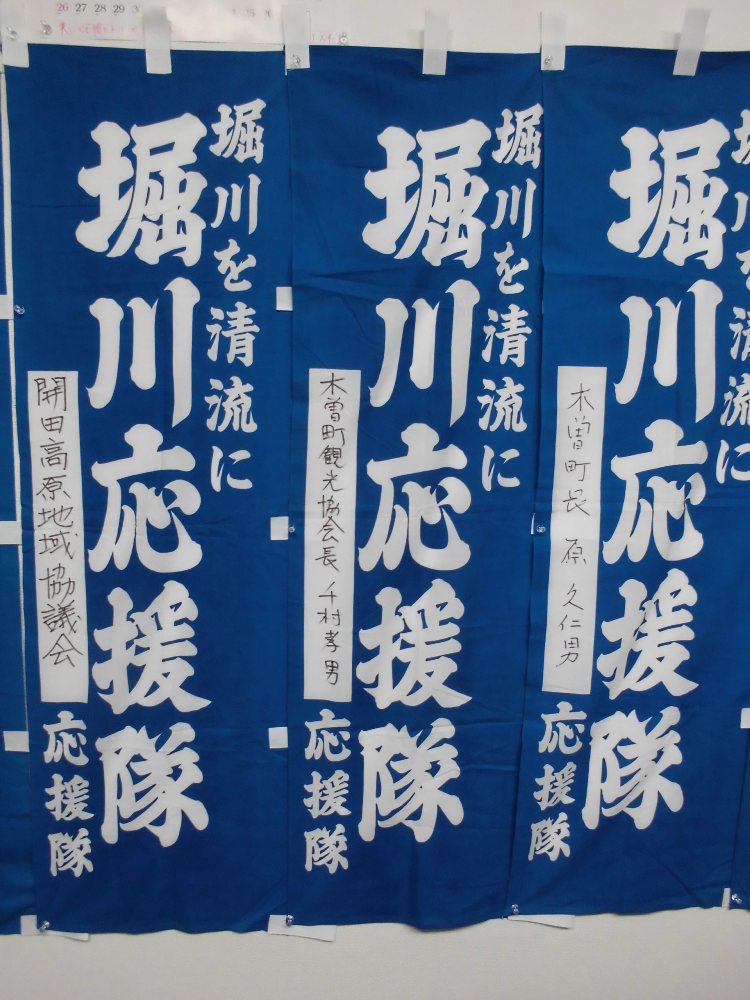 26 27 28 29
堀川を清流に
堀川応援隊
開田高原地域協議会
応援隊
堀川を清流に
堀川応援隊
木曽町観光協会長 千村孝男
応援隊
堀川を清流に
堀川応援隊
木曽町長 原 久仁男
応援隊